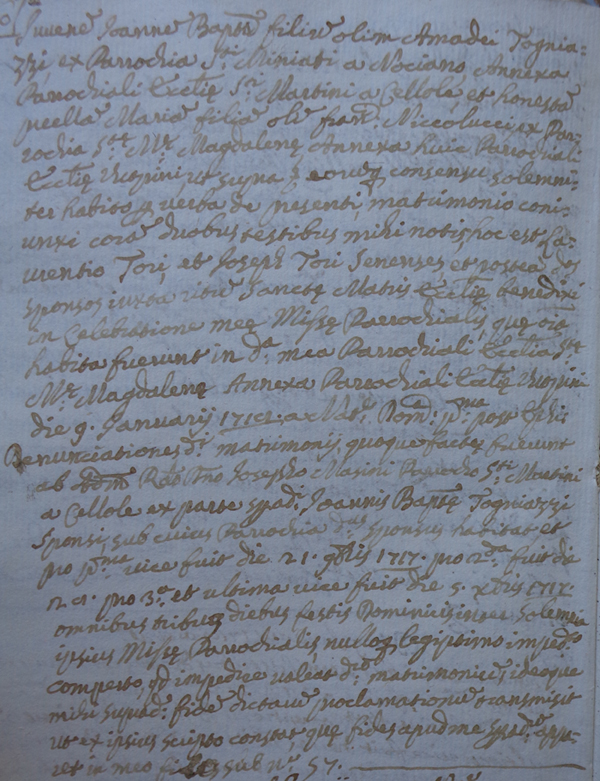 Juvene Joanne Bapta filiu olim Amadei Tognia=
zzi ex Parrochia Sti Miniati a Nociano Annexa
Parrochiali Ecclie Sti Martini a Cellole et honesta
puella Maria filia olim Franci Niccolucci ex Par=
rochia Ste Me Magdalene Annexa huic Parrochiali
Ecclie ut supra eorūq consensu solemni=
ter habito p verba de presenti, matrimonio coni=
unxi corā duobus testibus mihi notis hoc est La=
urentio Tori, et Joseph Tori Senenses et postea dos
sponsos iuxta ritū Sancte Matris Ecclie benedixi
in Celebratione mee Misse Parrochialis, que oīa
habita fuerunt in da mea Parrochiali Ecclia Ste
Me Magdalene Annexa Parrochiali Ecclie
die 9. Januarij a Nate Domca pma post Epife
Denunciationes di matrimonij quoque facte fuerunt
ab Rdo Josepho Masini Parrocho Sti Martini
a Cellole ex parte spadi Joannis Bapte Togniazzi
Sponsi, sub cuius Parrochia dus sponsus habitat et
pro pma vice fuit die 21. 9bris 1717. pro 2da fuit die
pro 3a et ultima vice fuit die 5. Xbris 1717
omnibus tribus diebus festis Dominicis inter Solemnia
ipsius Misse Parrochialis nulloq legiptimo imped:to
comperto, qd impedire valeat dum matrimoniu, ideoque
mihi supatdus fide dictaru proclamationu transmisit
ut ex ipsius scripto constat, que fides apud me spadta appa=
ret in meo sub no 57.